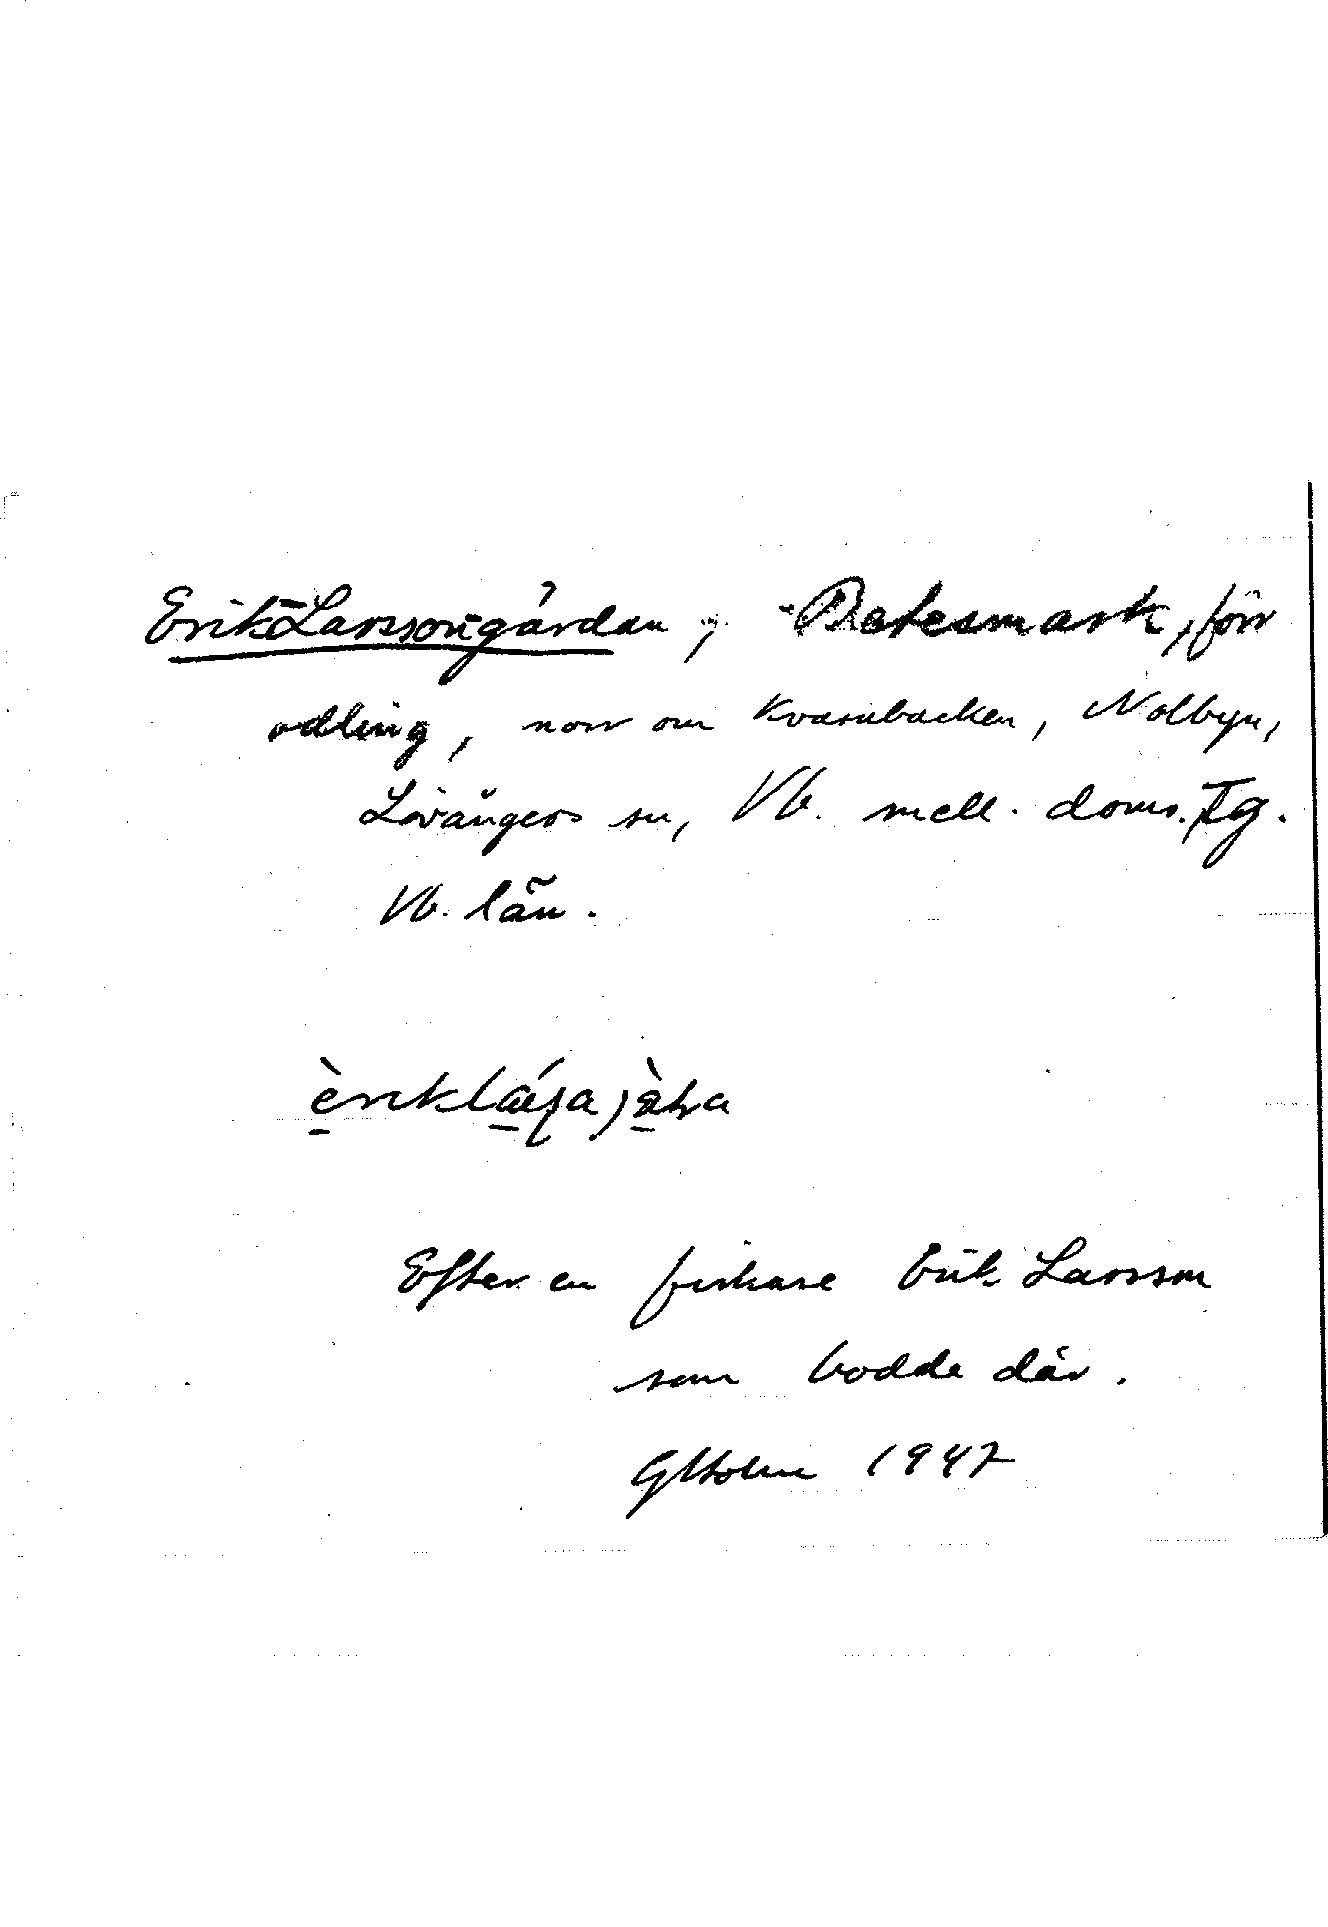 Erik-Larssongårdan, Betesmark, förr
odling, norr om Kvarnbacken, Nolbyn,
Lövångers sn, Vb. mell. doms. Tg.
Vb. län.
Efter en fiskare Erik Larsson
som bodde där.
GHolm 1947